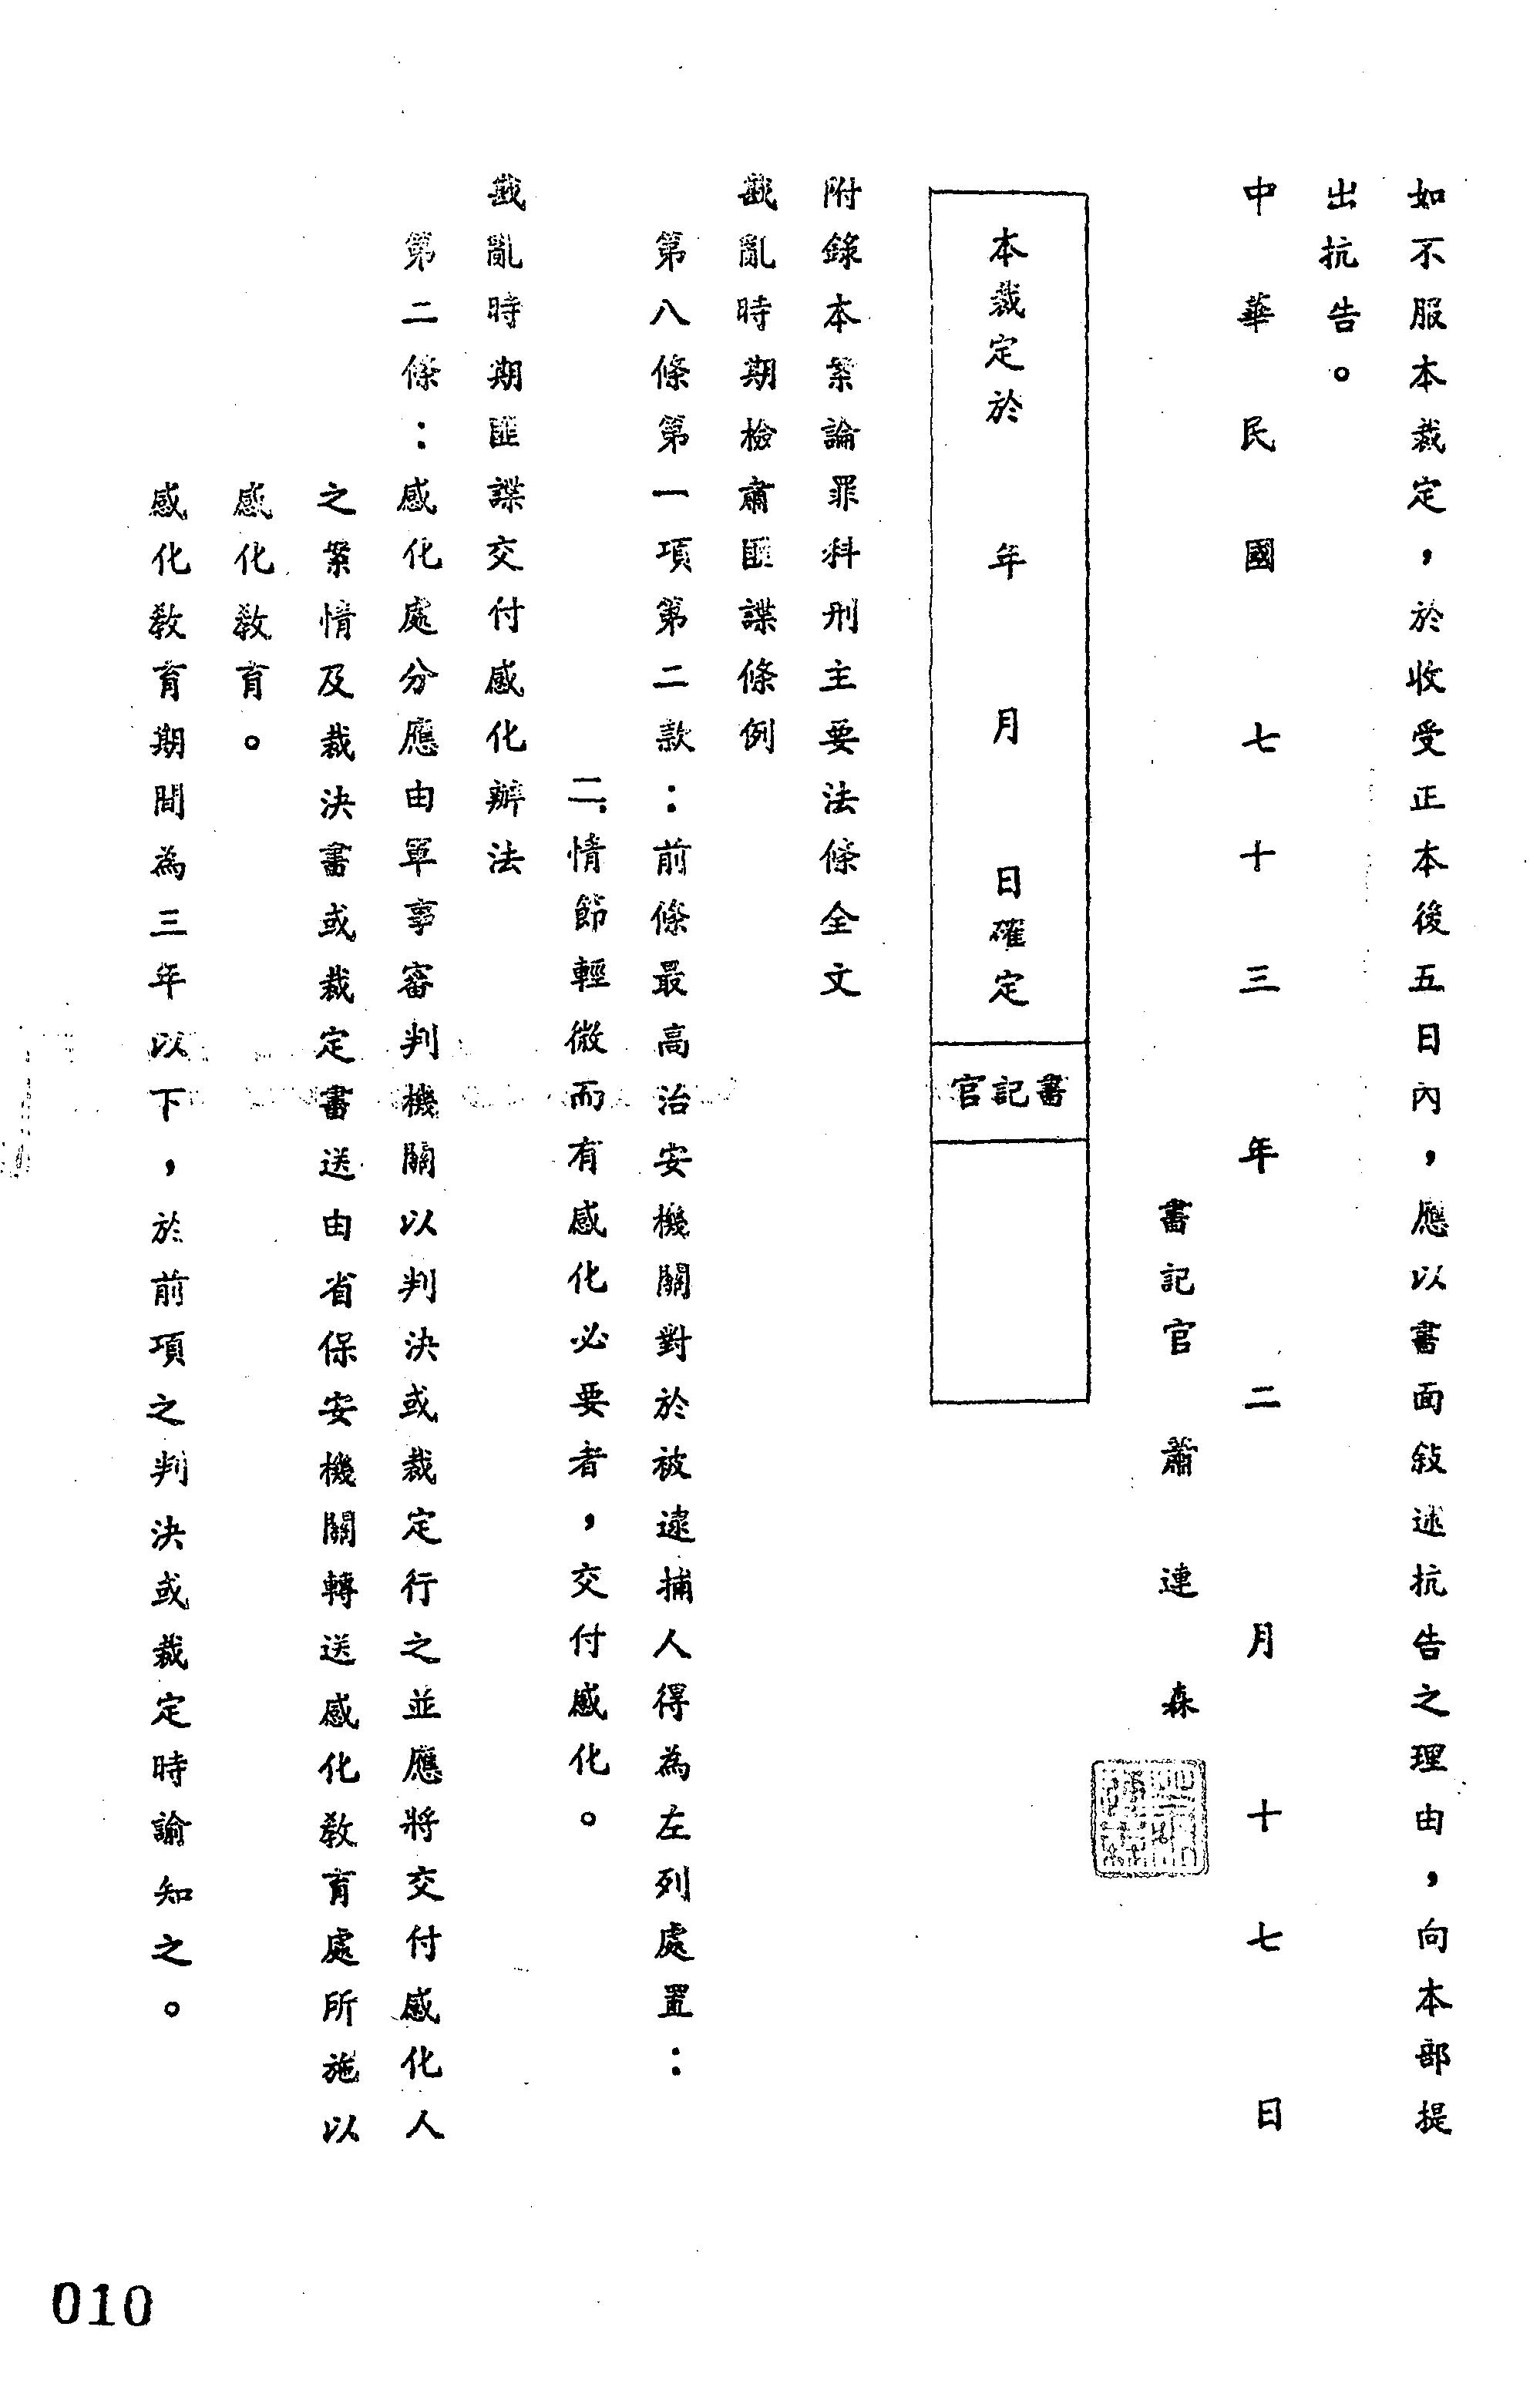 如不服本裁定，於收受正本後五日內，應以書面敍述抗告之理由，向本部提
出抗告。
中華民國七十三年二月十七日
書記官 蕭連森
本裁定於 年 月 日確定
書記官
附錄本案論罪科刑主要法條全文
戡亂時期檢肅匪諜條例
第八條第一項第二款：前條最高治安機關對於被逮捕人得為左列處置：
二、情節輕微而有感化必要者，交付感化。
戡亂時期匪諜交付感化辦法
第二條：感化處分應由軍事審判機關以判決或裁定行之並應將交付感化人
之案情及裁決書或裁定書送由省保安機關轉送感化教育處所施以
感化教育。
感化教育期間為三年以下，於前項之判決或裁定時諭知之。
010